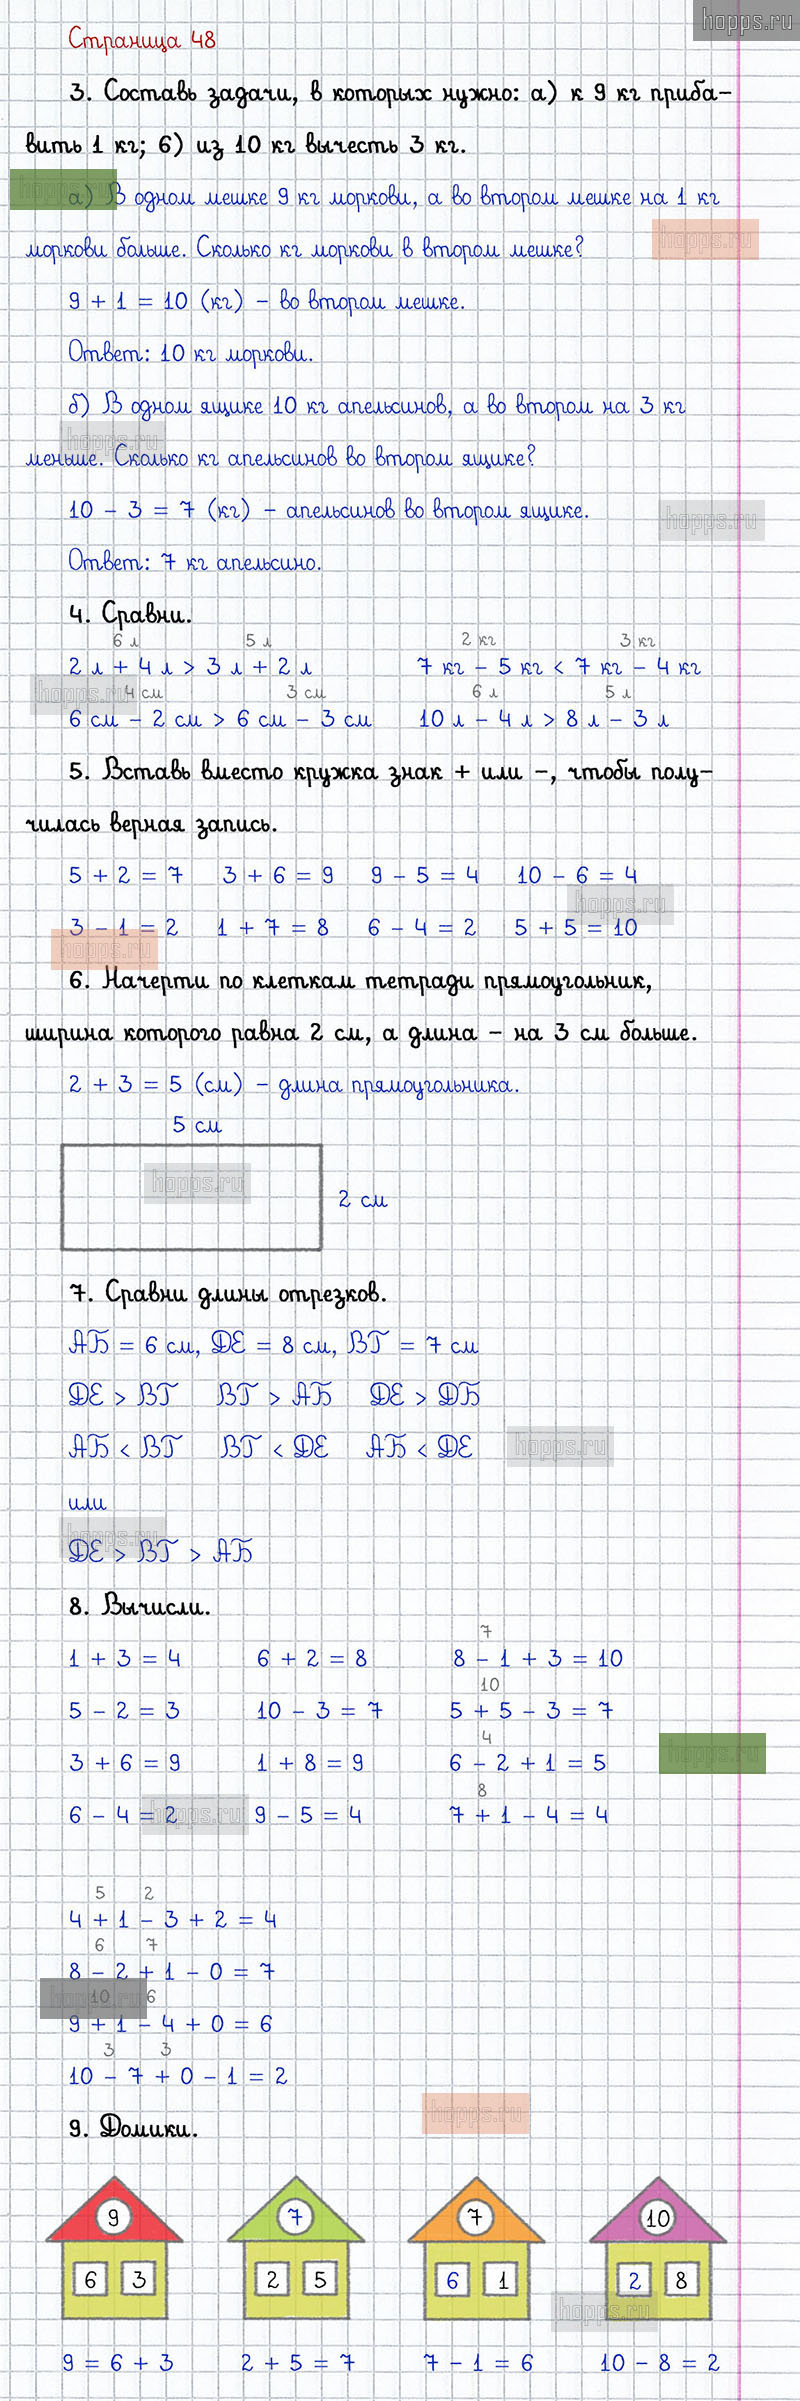 hopps.ru
Страница 48
3. Составь задачи, в которых нужно: а) к 9 кг приба-
вить 1 кг; б) из 10 кг вычесть 3 кг.
hopps.ru
а) В одном мешке 9 кг моркови, а во втором мешке на 1 кг
hopps.ru
моркови больше. Сколько кг моркови в втором мешке?
9 + 1 = 10 (кг) – во втором мешке.
Ответ: 10 кг моркови.
б) В одном ящике 10 кг апельсинов, а во втором на 3 кг
hopps.ru
меньше. Сколько кг апельсинов во втором ящике?
10 – 3 = 7 (кг) – апельсинов во втором ящике.
hopps.ru
Ответ: 7 кг апельсино.
4. Сравни.
6 л 5 л 2 кг 3 кг
2 л + 4 л > 3 л + 2 л 7 кг – 5 кг < 7 кг – 4 кг
hopps.ru
4 см 3 см 6 л 5 л
6 см – 2 см > 6 см – 3 см 10 л – 4 л > 8 л – 3 л
5. Вставь вместо кружка знак + или –, чтобы полу-
чилась верная запись.
5 + 2 = 7 3 + 6 = 9 9 – 5 = 4 10 – 6 = 4
hopps.ru
3 – 1 = 2 1 + 7 = 8 6 – 4 = 2 5 + 5 = 10
hopps.ru
6. Начерти по клеткам тетради прямоугольник,
ширина которого равна 2 см, а длина – на 3 см больше.
2 + 3 = 5 (см) – длина прямоугольника.
5 см
hopps.ru
2 см
7. Сравни длины отрезков.
АБ = 6 см, ДЕ = 8 см, ВГ = 7 см
ДЕ > ВГ ВГ > АБ ДЕ > ДБ
АБ < ВГ ВГ < ДЕ АБ < ДЕ
hopps.ru
или
hopps.ru
ДЕ > ВГ > АБ
8. Вычисли.
7
1 + 3 = 4 6 + 2 = 8 8 – 1 + 3 = 10
10
5 – 2 = 3 10 – 3 = 7 5 + 5 – 3 = 7
4
3 + 6 = 9 1 + 8 = 9 6 – 2 + 1 = 5
hopps.ru
8
6 – 4 = 2 9 – 5 = 4 7 + 1 – 4 = 4
hopps.ru
5 2
4 + 1 – 3 + 2 = 4
6 7
8 – 2 + 1 – 0 = 7
hopps.ru
10 6
9 + 1 – 4 + 0 = 6
3 3
10 – 7 + 0 – 1 = 2
hopps.ru
9. Домики.
9 7 7 10
6 3 2 5 6 1 2 8
hopps.ru
9 = 6 + 3 2 + 5 = 7 7 – 1 = 6 10 – 8 = 2